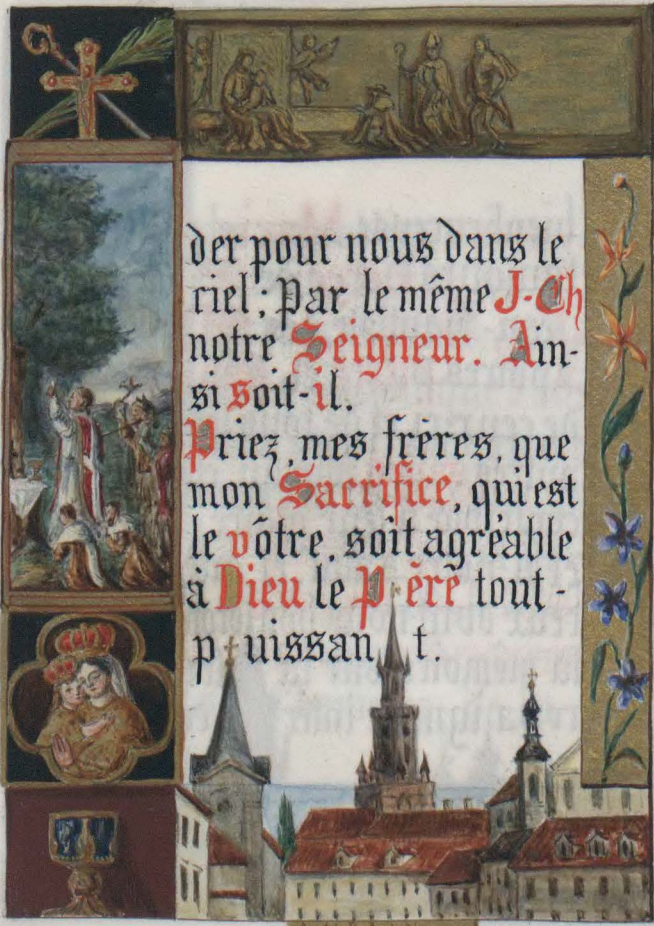 der pour nous dans le
ciel; Par le même J-Ch
notre Seigneur. Ain-
si soit-il.
Priez, mes frères, que
mon Sacrifice, qui est
le vôtre, soit agréable
à Dieu le Père tout-
puissant.